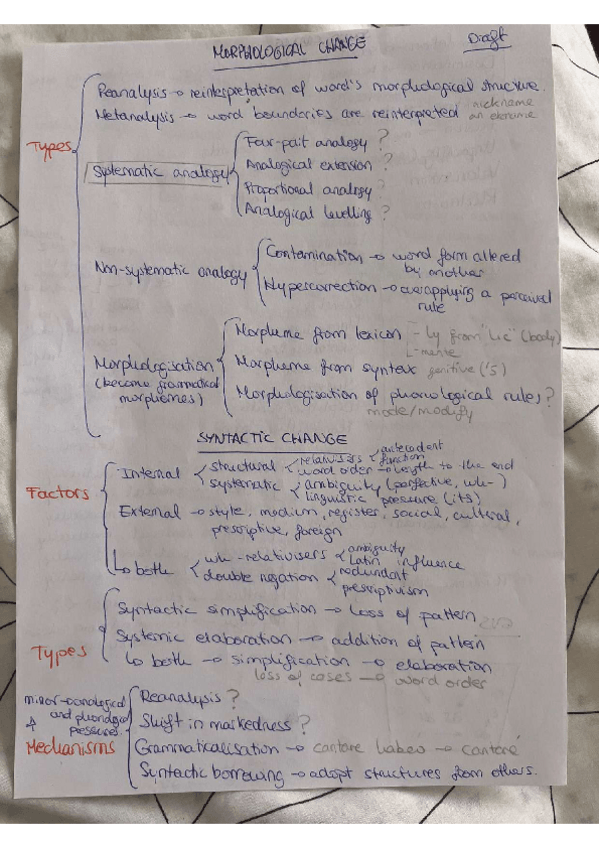 MORPHOLOGICAL CHANGE
Draft
Types
Reanalysis → reinterpretation of word's morphological structure.
Metanalysis → word boundaries are reinterpreted
nickname
an ekename
Systematic analogy
Four-part analogy ?
Analogical extension ?
Proportional analogy ?
Analogical levelling ?
Non-systematic analogy
Contamination → word form altered
by another
Hypercorrection → overapplying a perceived
rule
Morphologisation
(become grammatical
morphemes)
Morpheme from lexicon - ly from "lic" (body)
Morpheme from syntax genitive ('s)
Morphologisation of phonological rules?
mode/modify
SYNTACTIC CHANGE
Factors
Internal
structural
relativisers
antecedent
function
word order → length to the end
systematic
ambiguity (perfective, wh-)
linguistic pressure (its)
External → style, medium, register, social, cultural,
prescriptive, foreign
↳ both
wh-relativisers
ambiguity
Latin influence
double negation
redundant
prescriptivism
Types
Syntactic simplification → loss of pattern
Systemic elaboration → addition of pattern
↳ both → simplification → elaboration
loss of cases → word order
and phonological
pressures
Mechanisms
Reanalysis ?
Shift in markedness ?
Grammaticalisation → cantare habeo → cantaré
Syntactic borrowing → adopt structures from others.